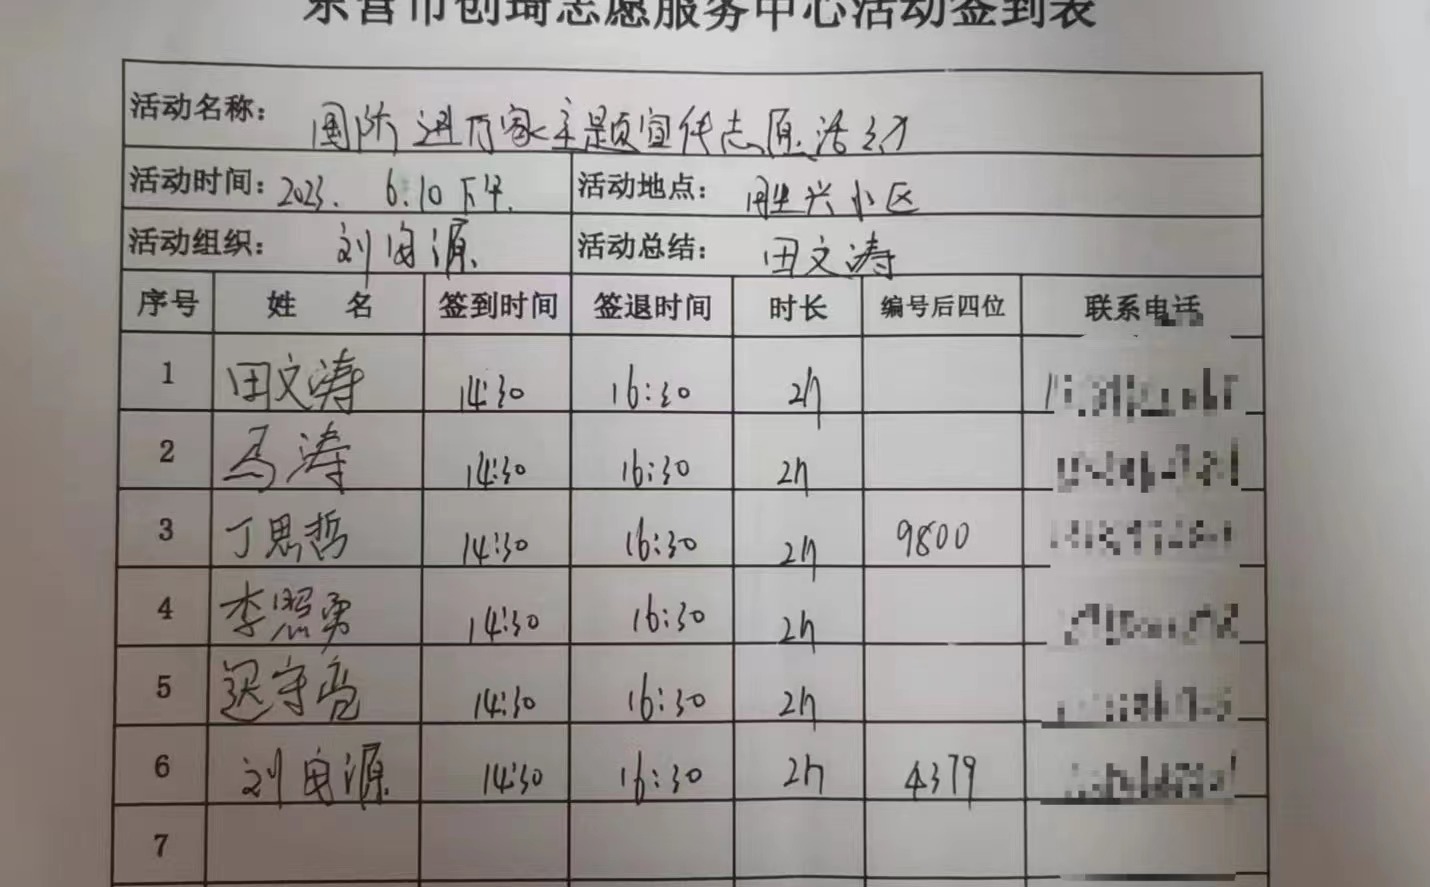 东营市创琦志愿服务中心活动签到表
活动名称： 国防进万家主题宣传志愿活动
活动时间：2023. 6.10下午. 活动地点： 胜兴小区
活动组织： 刘 源 活动总结： 田文涛
序号 姓 名 签到时间 签退时间 时长 编号后四位 联系电话
1 田文涛 14:30 16:30 2h
2 马涛 14:30 16:30 2h
3 丁思哲 14:30 16:30 2h 9800
4 李照勇 14:30 16:30 2h
5 迟守亮 14:30 16:30 2h
6 刘 源 14:30 16:30 2h 4379
7